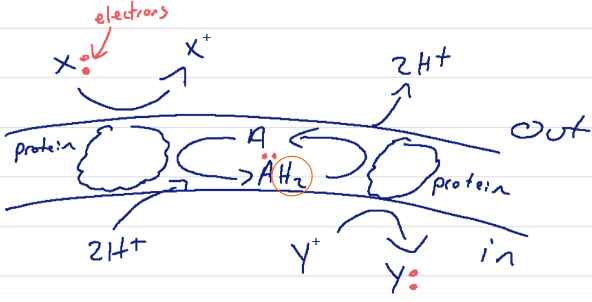 electrons
X: X⁺
2H+
Out
protein
A
ÄH₂
protein
2H+
Y⁺
Y:
in